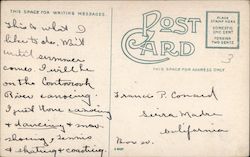 THIS SPACE FOR WRITING MESSAGES.
POST
CARD
PLACE
STAMP HERE
DOMESTIC
ONE CENT
FOREIGN
TWO CENTS
3
THIS SPACE FOR ADDRESS ONLY.
This is what I
like to do. Wait
until summer
comes I will be
on the Contoocook
River canoeing.
I just love canoeing
& dancing & snow
shoeing, tennis
& skating & coasting.
Francis P. Conrad
Sierra Madre
California
Box